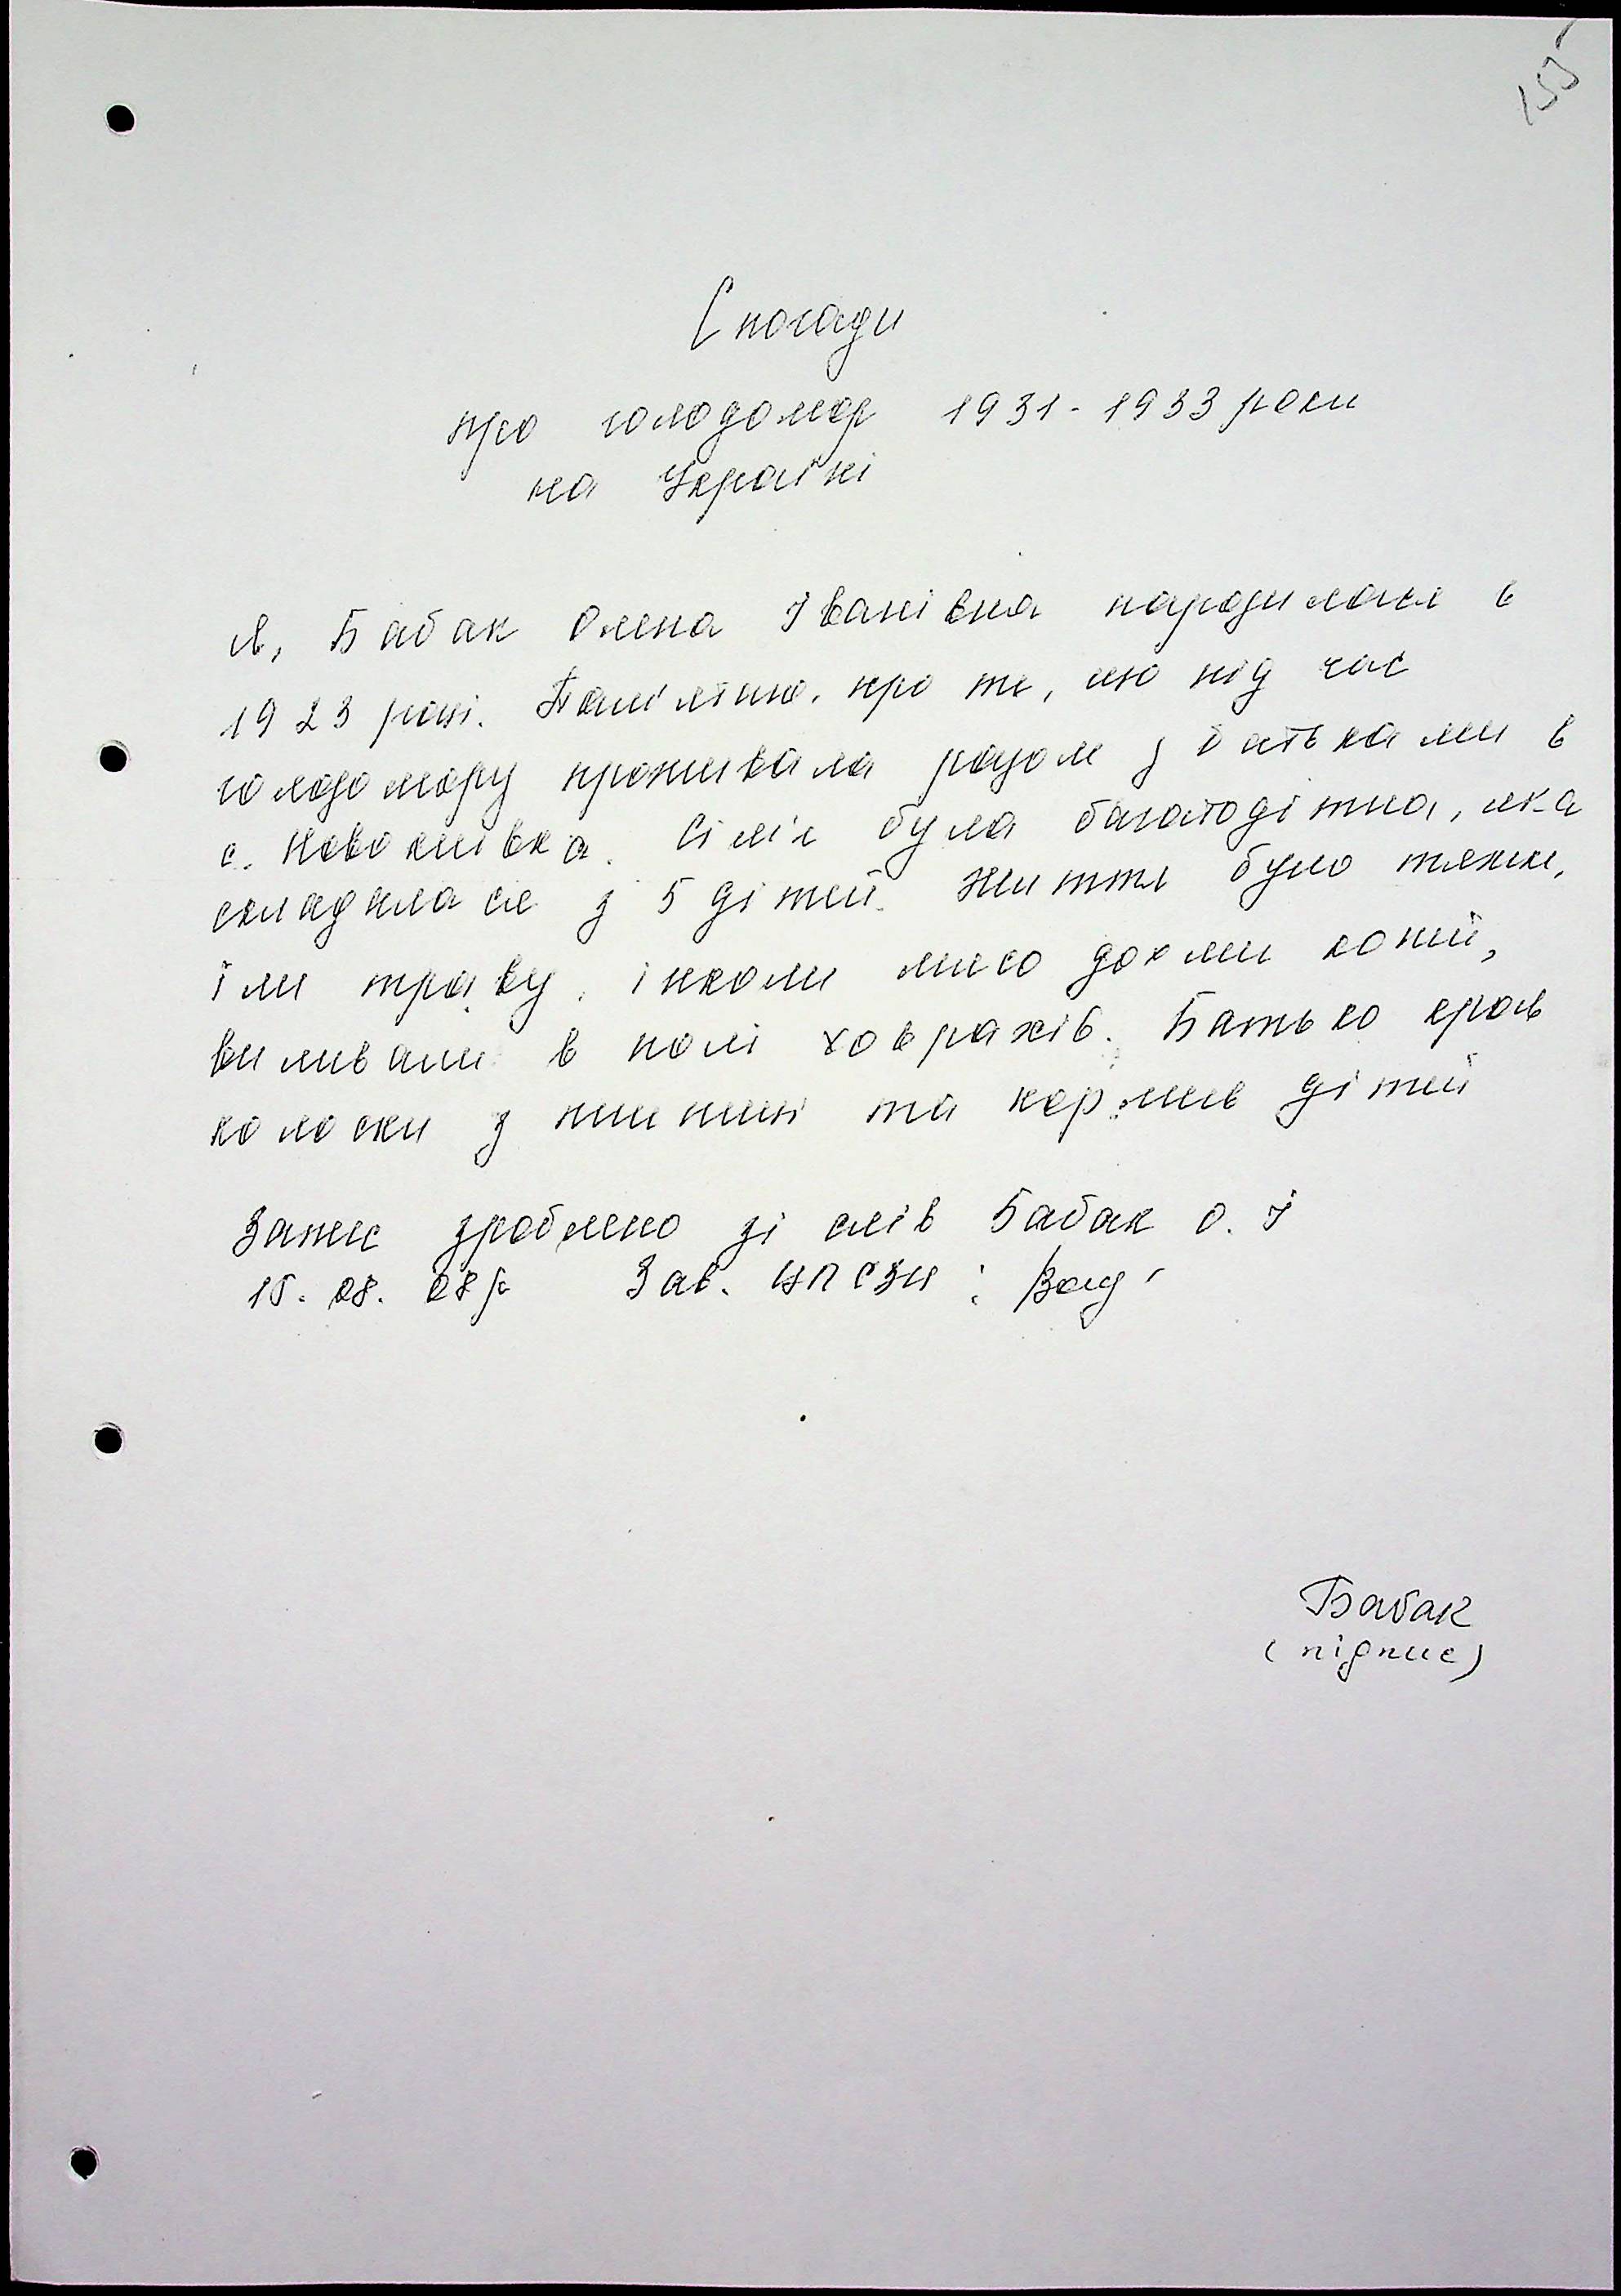 155
Спогади
про голодомор 1931-1933 роки
на Україні
Я, Бабак Олена Іванівна народилася в
1923 році. Пам'ятаю про те, що під час
голодомору проживала разом з батьками в
с. Сім'я була багатодітна, яка
складалася з 5 дітей. Життя було тяжке,
їли траву, інколи мясо дохли коній,
виливали в полі ховрахів. Батько крав
колоски з пшениці та кормив дітей
Запис зроблено зі слів Бабак О. І
15. 08. 08р Зав.
Бабак
(підпис)